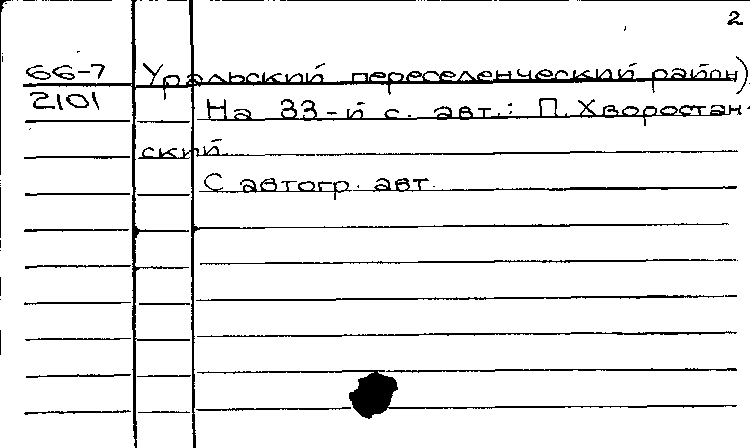 2
66-7 Уральский переселенческий район)
2101 На 33-й с. авт.: П. Хворостан-
ский
С автогр. авт.